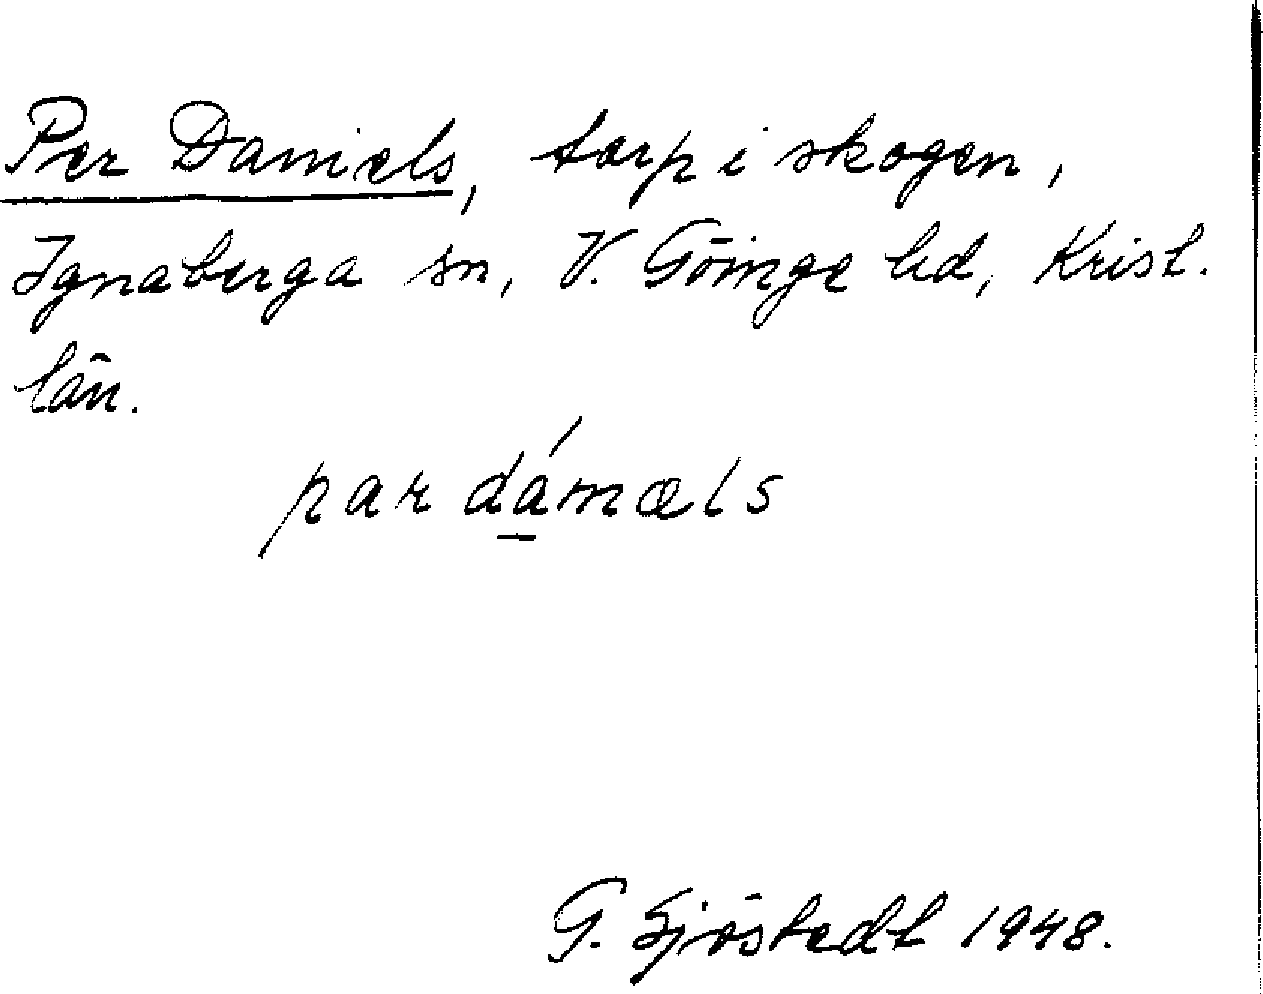 Per Daniels, torp i skogen,
Ignaberga sn, V. Göinge hd, Krist.
län.
par dánæls
G. Sjöstedt 1948.